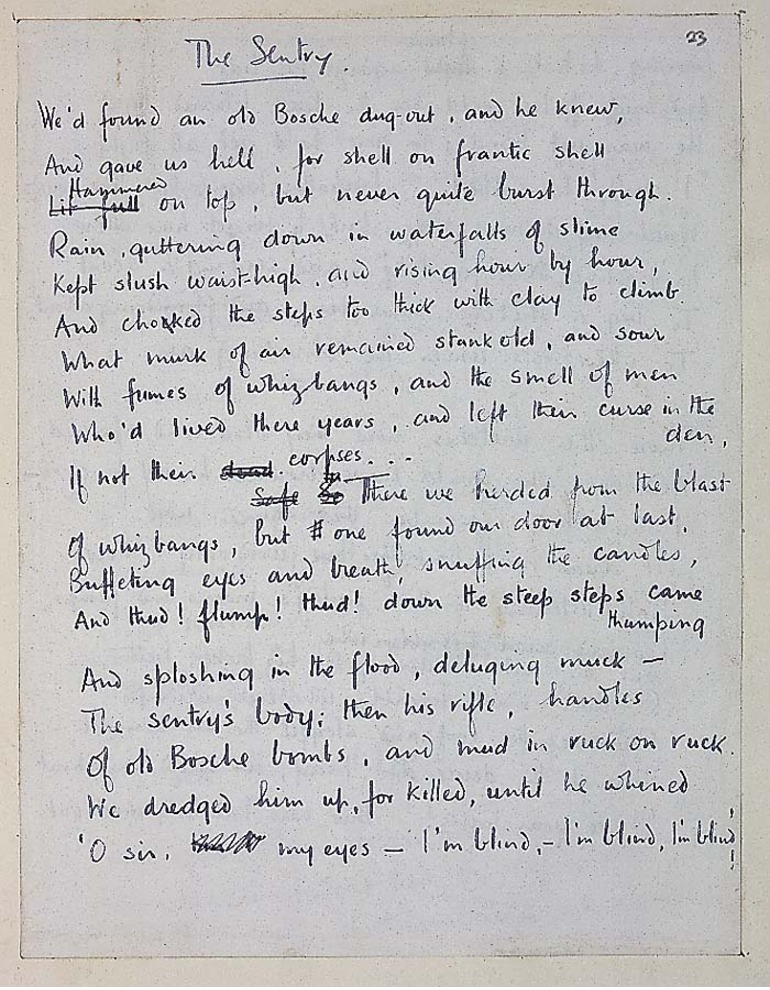 23
The Sentry.
We'd found an old Bosche dug-out, and he knew,
And gave us hell, for shell on frantic shell
Hammered
Lit full on top, but never quite burst through.
Rain, guttering down in waterfalls of slime
Kept slush waist-high, and rising hour by hour,
And choked the steps too thick with clay to climb.
What murk of air remained stank old, and sour
With fumes of whizbangs, and the smell of men
Who'd lived there years, and left their curse in the
den,
If not their corpses...
There we herded from the blast
Of whizbangs, but one found our door at last,
Buffeting eyes and breath, snuffing the candles,
And thud! flump! thud! down the steep steps came
thumping
And sploshing in the flood, deluging muck —
The sentry's body; then his rifle, handles
Of old Bosche bombs, and mud in ruck on ruck.
We dredged him up, for killed, until he whined
'O sir, my eyes — I'm blind, – I'm blind, I'm blind!'